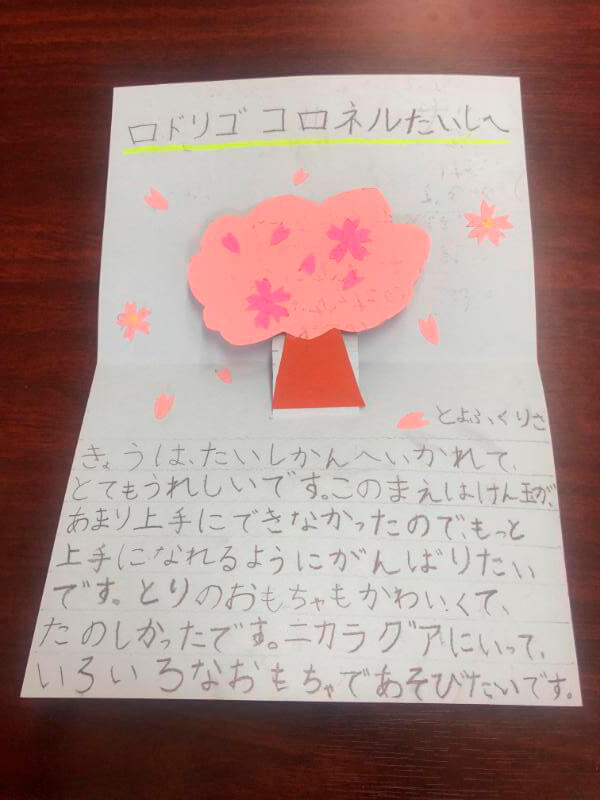 ロドリゴ コロネルたいしへ
とよふくりさ
きょうは、たいしかんへいかれて、
とてもうれしいです。このまえはけん玉が、
あまり上手にできなかったので、もっと
上手になれるようにがんばりたい
です。とりのおもちゃもかわいくて、
たのしかったです。ニカラグアにいって、
いろいろなおもちゃであそびたいです。